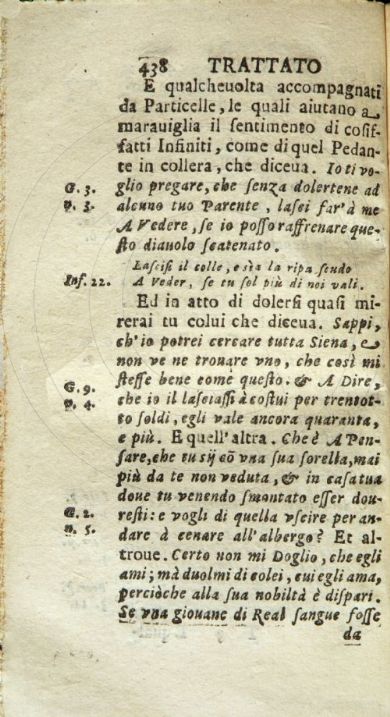 438 TRATTATO
E qualcheuolta accompagnati
da Particelle, le quali aiutano a
marauiglia il sentimento di cosif-
fatti Infiniti, come di quel Pedan-
te in collera, che diceua. Io ti vo-
G. 5. glio pregare, che senza dolertene ad
n. 3. alcuno tuo Parente, lasci far'à me
A Vedere, se io posso raffrenare que-
sto diauolo scatenato.
Lascisi il colle, e sia la ripa scudo
Inf. 22. A Veder, se tu sol più di noi vali.
Ed in atto di dolersi quasi mi-
rerai tu colui che diceua. Sappi,
ch'io potrei cercare tutta Siena, e
non ve ne trouare vno, che così mi
stesse bene come questo. & A Dire,
G. 9. che io il lasciassi à costui per trentot-
n. 4. to soldi, egli vale ancora quaranta,
e più. E quell'altra. Che è A Pen-
sare, che tu sij cõ vna sua sorella, mai
più da te non veduta, & in casa tua
doue tu venendo smontato esser dou-
G. 2. resti: e vogli di quella vscire per an-
n. 5. dare à cenare all'albergo? Et al-
troue. Certo non mi Doglio, che egli
ami; mà duolmi di colei, cui egli ama,
perciòche alla sua nobiltà è dispari.
Se vna giouane di Real sangue fosse
da